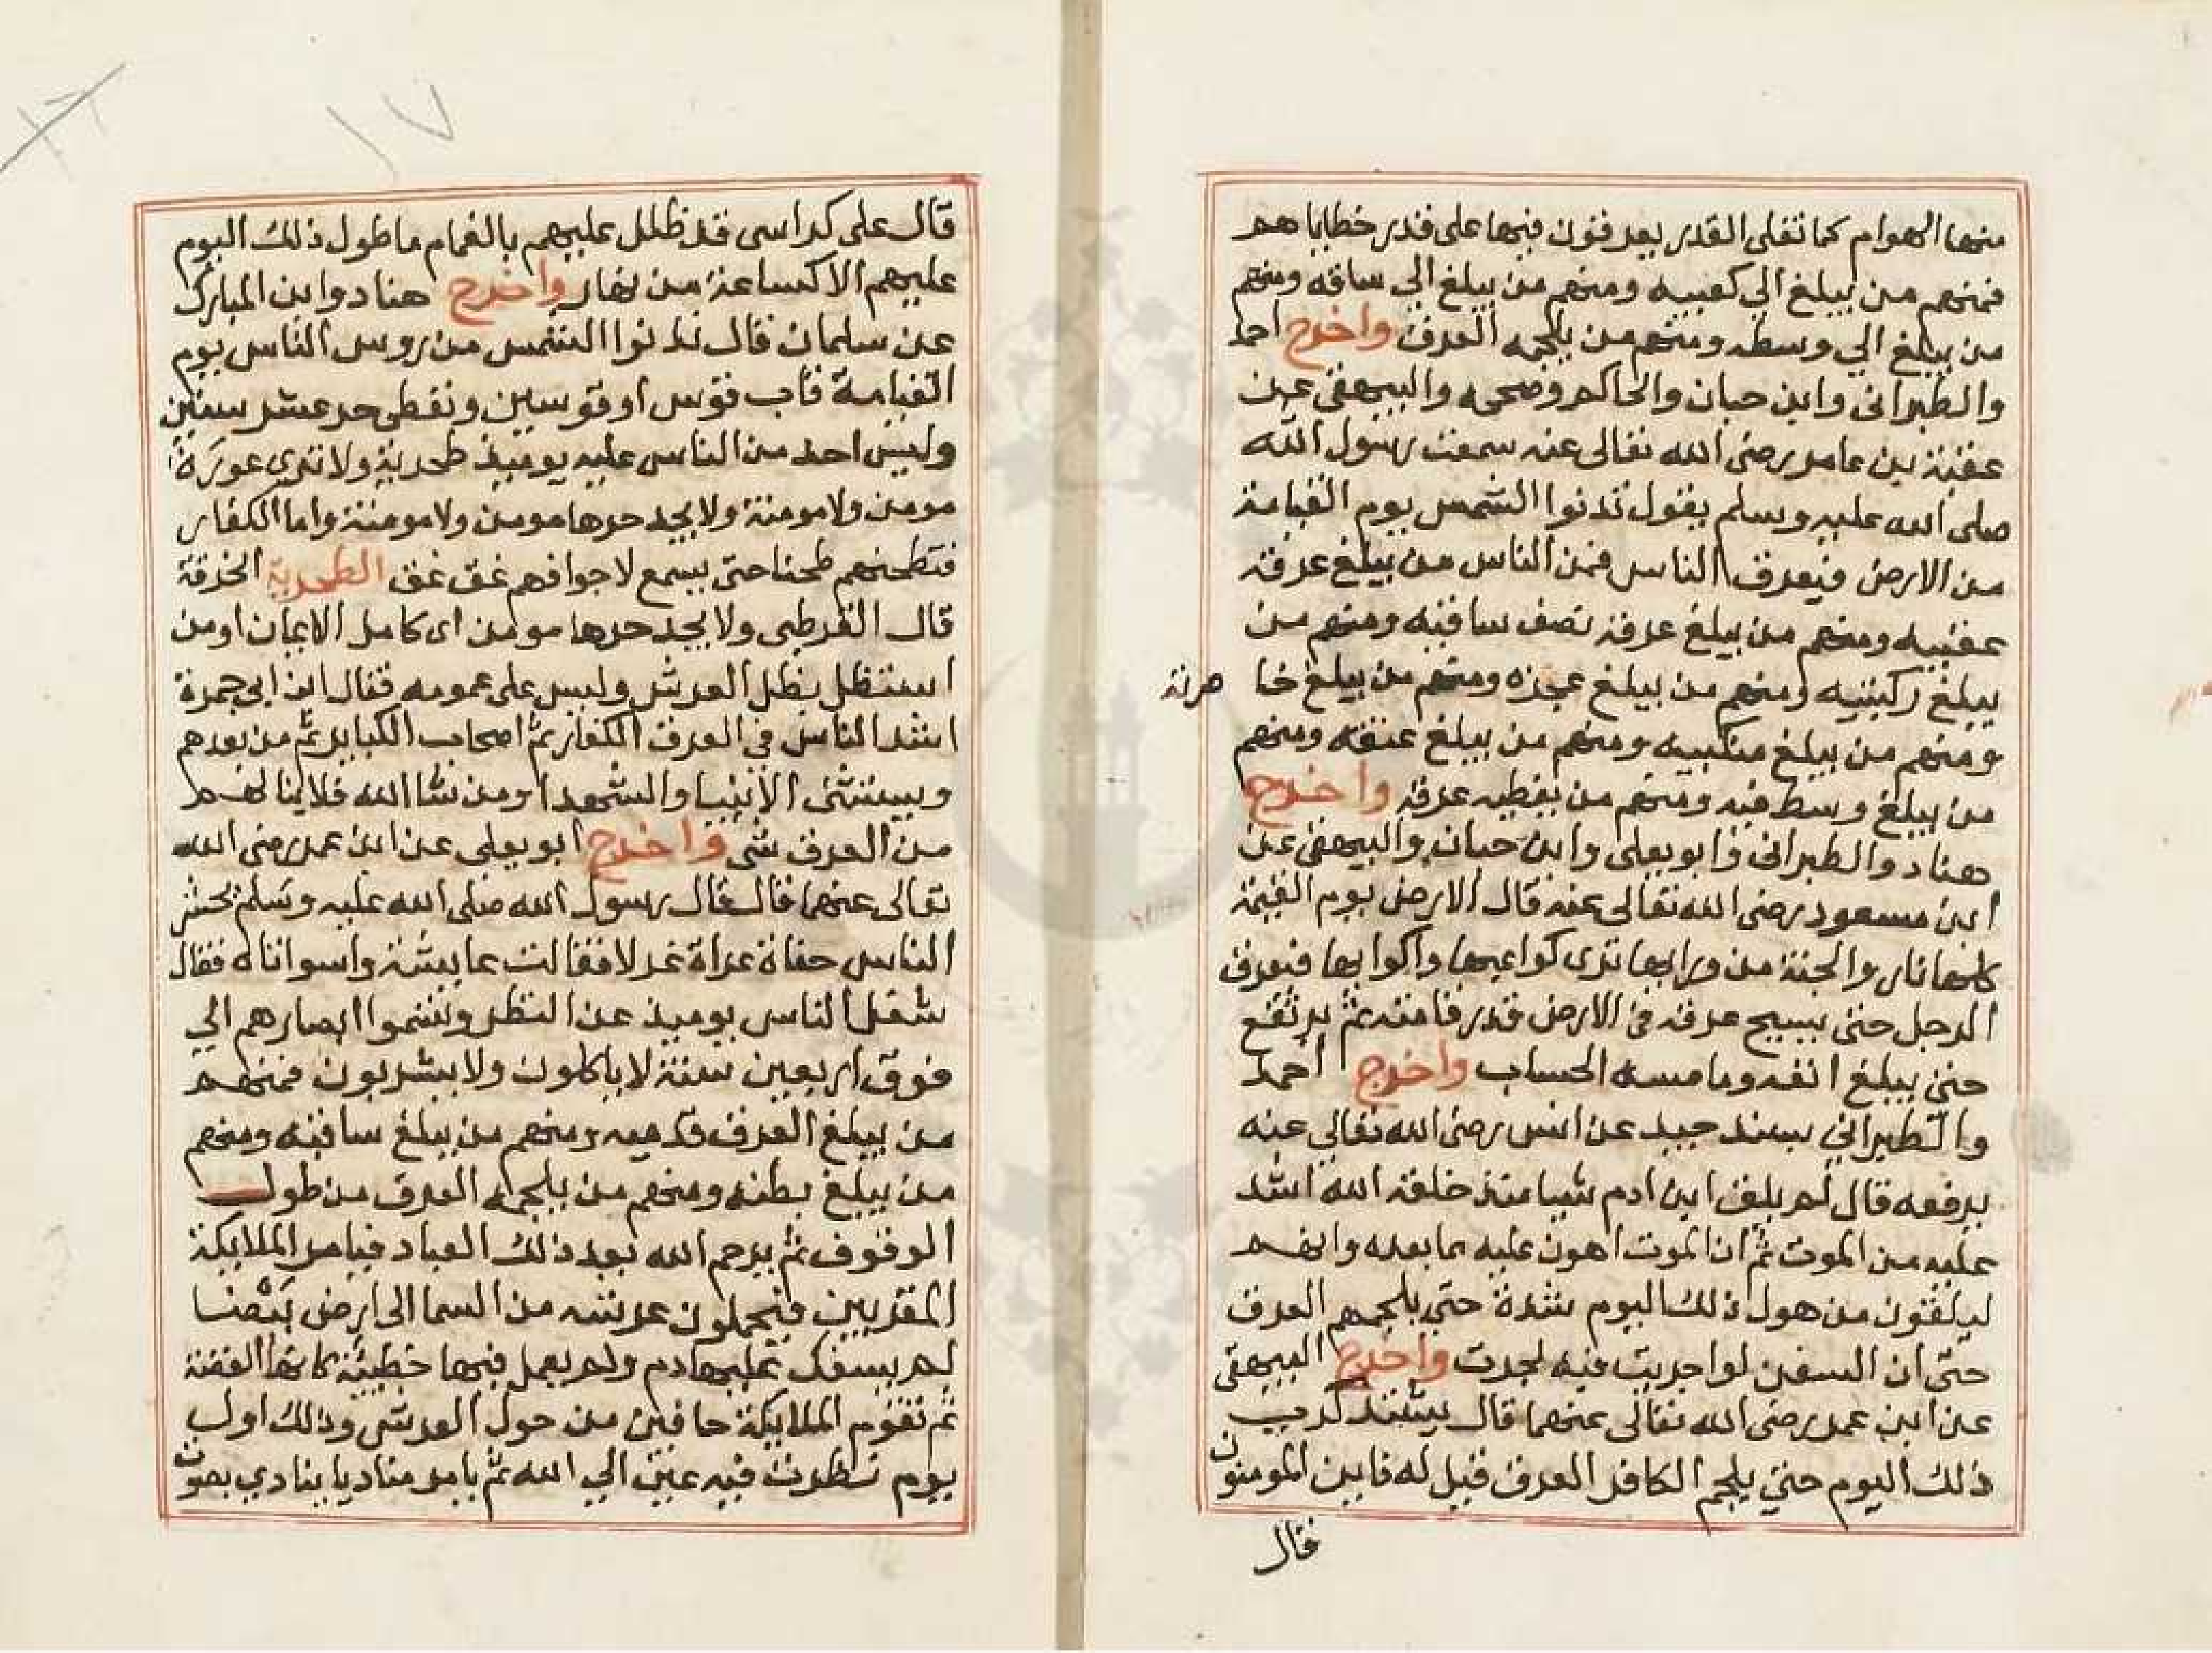 منها الهوام كما تغلى القدر يعرقون فيها على قدر خطاياهم
فمنهم من يبلغ الي كعبيه ومنهم من يبلغ الي ساقه ومنهم
من يبلغ الي وسطه ومنهم من يلجمه العرق واخرج احمد
والطبرانى وابن حبان والحاكم وصححه والبيهقى عن
عقبة بن عامر رضى الله تعالى عنه سمعت رسول الله
صلى الله عليه وسلم يقول تدنوا الشمس يوم القيامة
من الارض فيعرق الناس فمن الناس من يبلغ عرقه
عقبيه ومنهم من يبلغ عرقه نصف ساقيه ومنهم من
يبلغ ركبتيه ومنهم من يبلغ عجزه ومنهم من يبلغ خا صرته
ومنهم من يبلغ منكبيه ومنهم من يبلغ عنقه ومنهم
من يبلغ وسط فيه ومنهم من يغطيه عرقه واخرج
هناد والطبرانى وابو يعلى وابن حبان والبيهقى عن
ابن مسعود رضى الله تعالى عنه قال الارض يوم القيمة
كلها نار والجنة من ورايها ترى كواعبها واكوابها فيعرق
الرجل حتى يسيح عرقه فى الارض قدر قامته ثم يرتفع
حتى يبلغ انفه وما مسه الحساب واخرج احمد
والطبراني بسند جيد عن انس رضى الله تعالى عنه
يرفعه قال لم يلق ابن ادم شيا منذ خلقه الله اشد
عليه من الموت ثم ان الموت اهون عليه مما بعده وانهم
ليلقون من هول ذلك اليوم شدة حتى يلجمهم العرق
حتى ان السفن لو اجريت فيه لجرت واخرج البيهقى
عن ابن عمر رضى الله تعالى عنهما قال يشتد كرب
ذلك اليوم حتى يلجم الكافر العرق قيل له فاين المومنون
قال
١٧
قال على كراسى قد ظلل عليهم بالغمام ما طول ذلك اليوم
عليهم الا كساعة من نهار واخرج هناد وابن المبارك
عن سلمان قال تدنوا الشمس من روس الناس يوم
القيامة قاب قوس او قوسين وتعطى حر عشر سنين
وليس احد من الناس عليه يوميذ طحربة ولا تري عورة
مومن ولا مومنة ولا يجد حرها مومن ولا مومنة واما الكفار
فتطحنهم طحنا حتى يسمع لاجوافهم غق غق الطحربة الخرقة
قال القرطبى ولا يجد حرها مومن اى كامل الايمان او من
استظل بظل العرش وليس على عمومه فقال ابن ابى جمرة
اشد الناس فى العرق الكفار ثم اصحاب الكباير ثم من بعدهم
ويستثنى الانبيا والشهدا ومن شا الله فلا ينالهم
من العرق شى واخرج ابو يعلى عن ابن عمر رضى الله
تعالى عنهما قال قال رسول الله صلى الله عليه وسلم يحشر
الناس حفاة عراة غرلا فقالت عايشة واسواتاه فقال
شغل الناس يوميذ عن النظر وتسموا ابصارهم الي
فوق اربعين سنة لا ياكلون ولا يشربون فمنهم
من يبلغ العرق قدميه ومنهم من يبلغ ساقيه ومنهم
من يبلغ بطنه ومنهم من يلجمه العرق من طول
الوقوف ثم يرحم الله بعد ذلك العباد فيامر الملايكة
المقربين فيحملون عرشه من السما الى ارض بيضا
لم يسفك عليها دم ولم يعمل فيها خطيئة كانها الفضة
ثم تقوم الملايكة حافين من حول العرش وذلك اول
يوم نظرت فيه عين الي الله ثم يامر مناديا ينادي بصوت